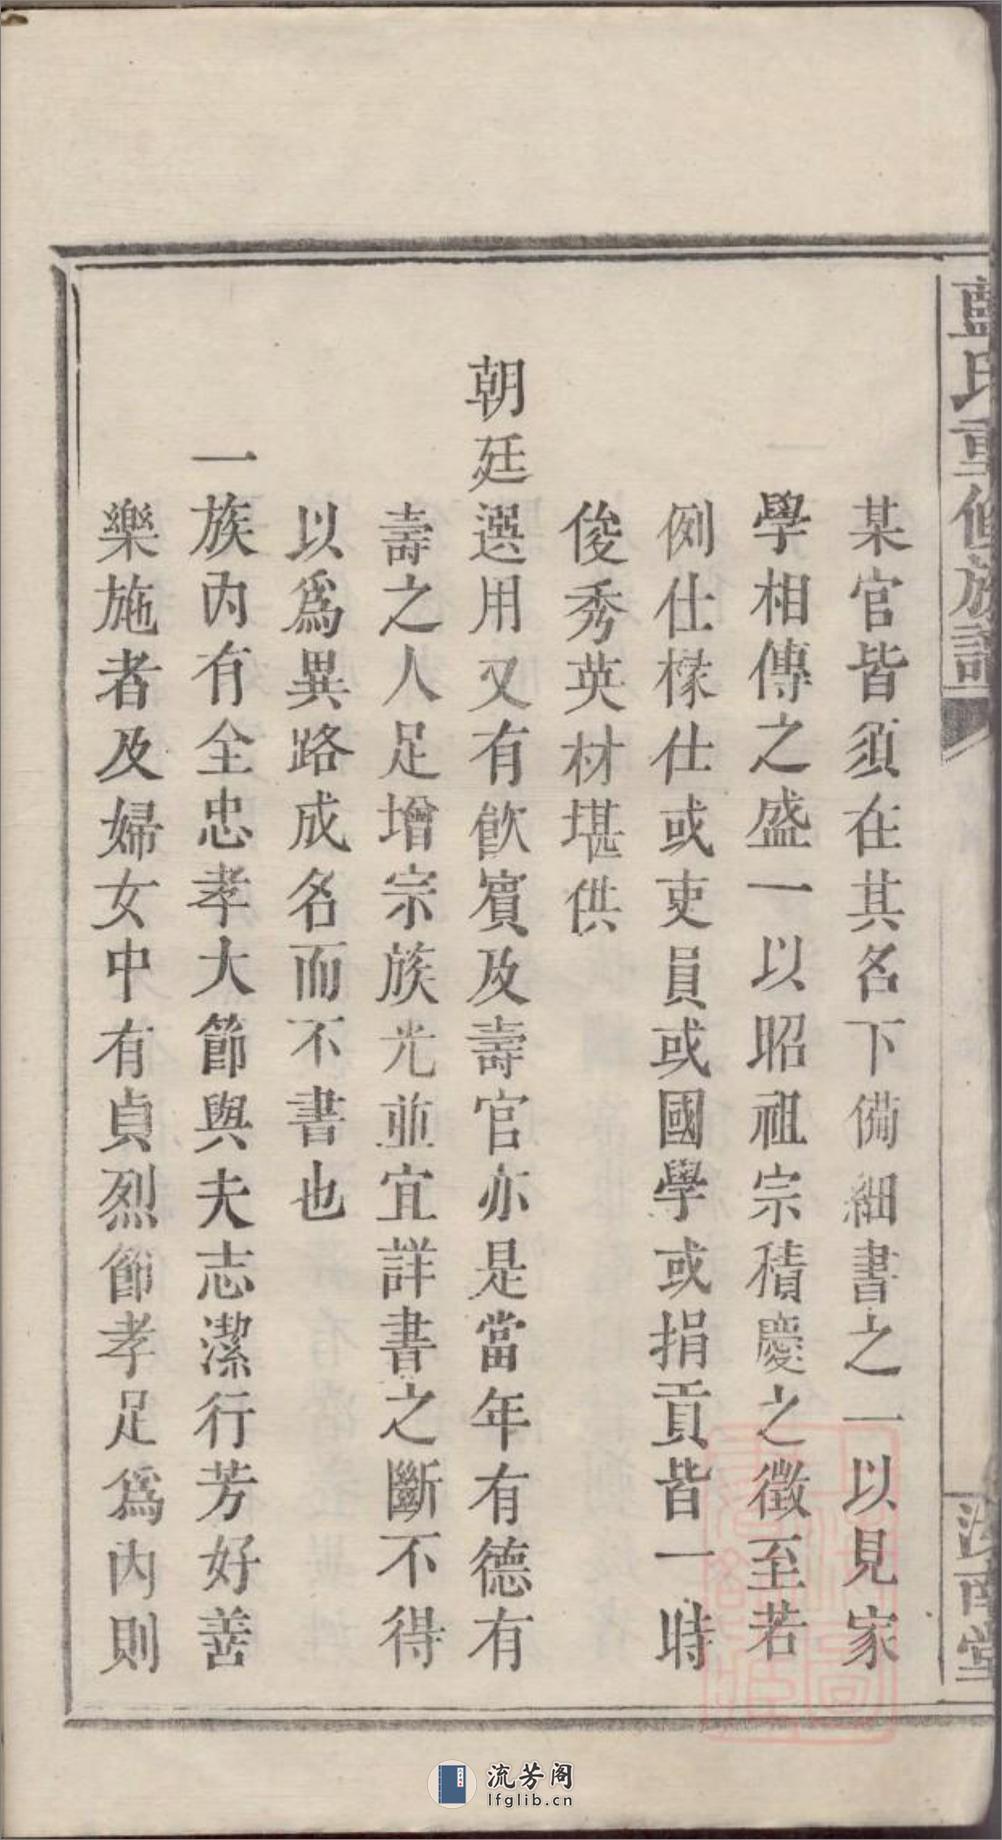 藍氏重修族譜
汝南堂
某官皆須在其名下備細書之一以見家
學相傳之盛一以昭祖宗積慶之徵至若
例仕椽仕或吏員或國學或捐貢皆一時
俊秀英材堪供
朝廷選用又有飲賓及壽官亦是當年有德有
壽之人足增宗族光並宜詳書之斷不得
以爲異路成名而不書也
一族內有全忠孝大節與夫志潔行芳好善
樂施者及婦女中有貞烈節孝足爲內則
流芳阁
lfglib.cn